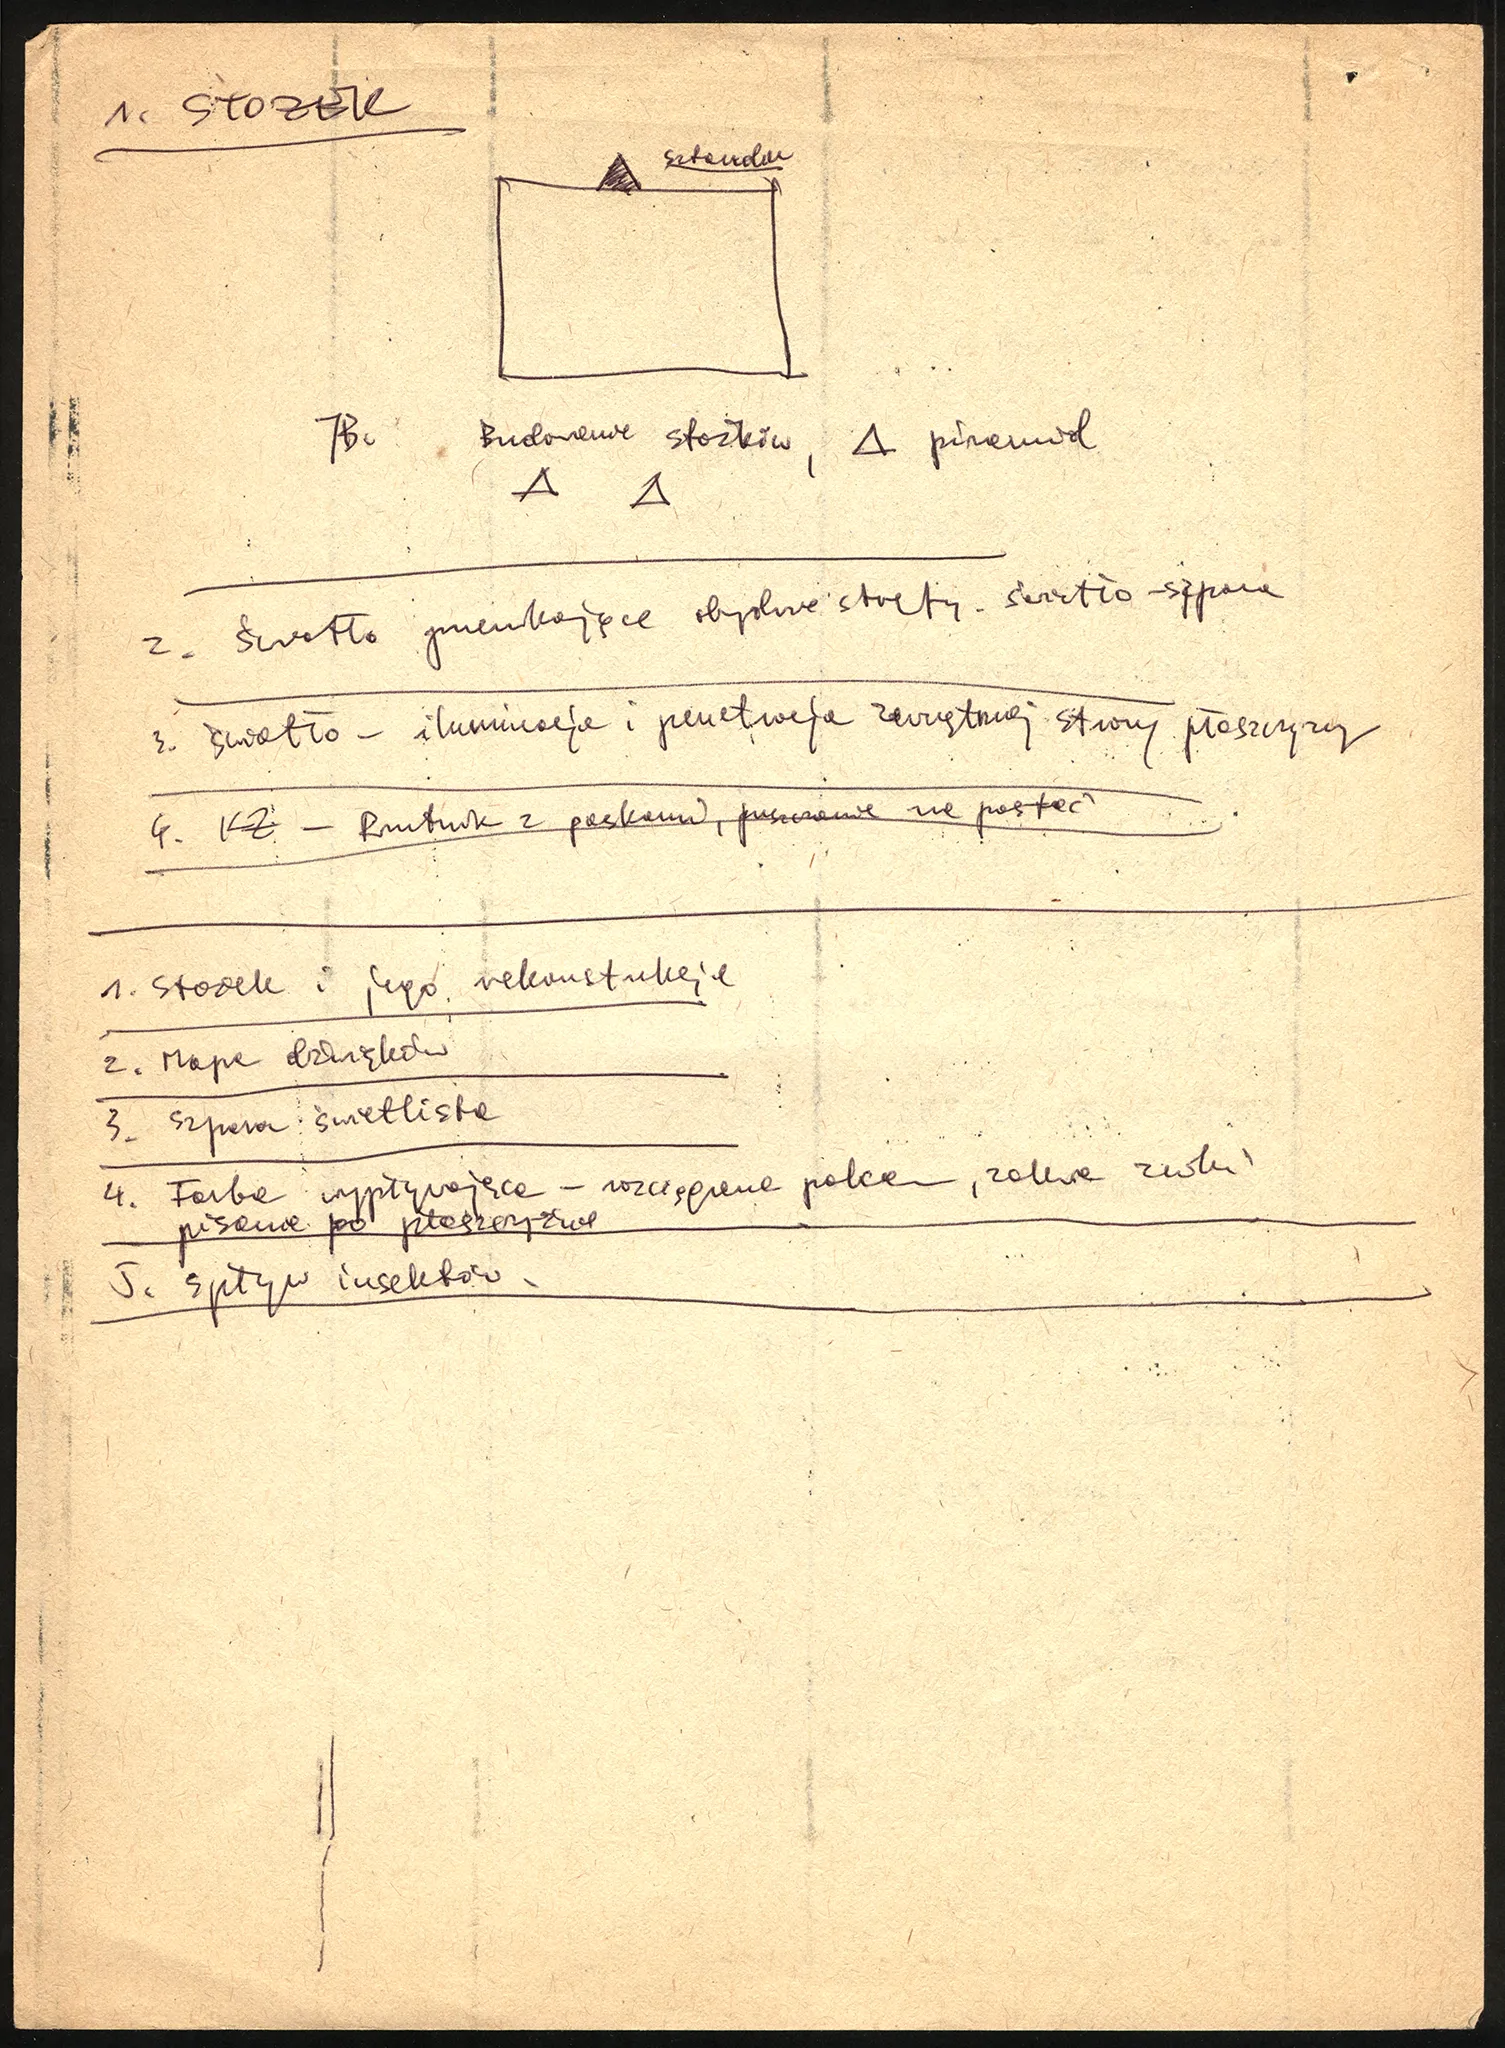 1. STOŻEK
sztandar
7B. Budowanie stożków, Δ piramid
Δ Δ
2. Światło przenikające obydwie strefy. światło-szpara
3. światło - iluminacja i penetracja zewnętrznej strony płaszczyzny
4. KŻ - Rzutnik z paskami, puszczanie na postać
1. Stożek i jego rekonstukcje
2. Mapa dźwięków
3. Szpara świetlista
4. Farba wypływająca - rozciągana palcem, znaki
pisane po płaszczyźnie
5. Spływ insektów.